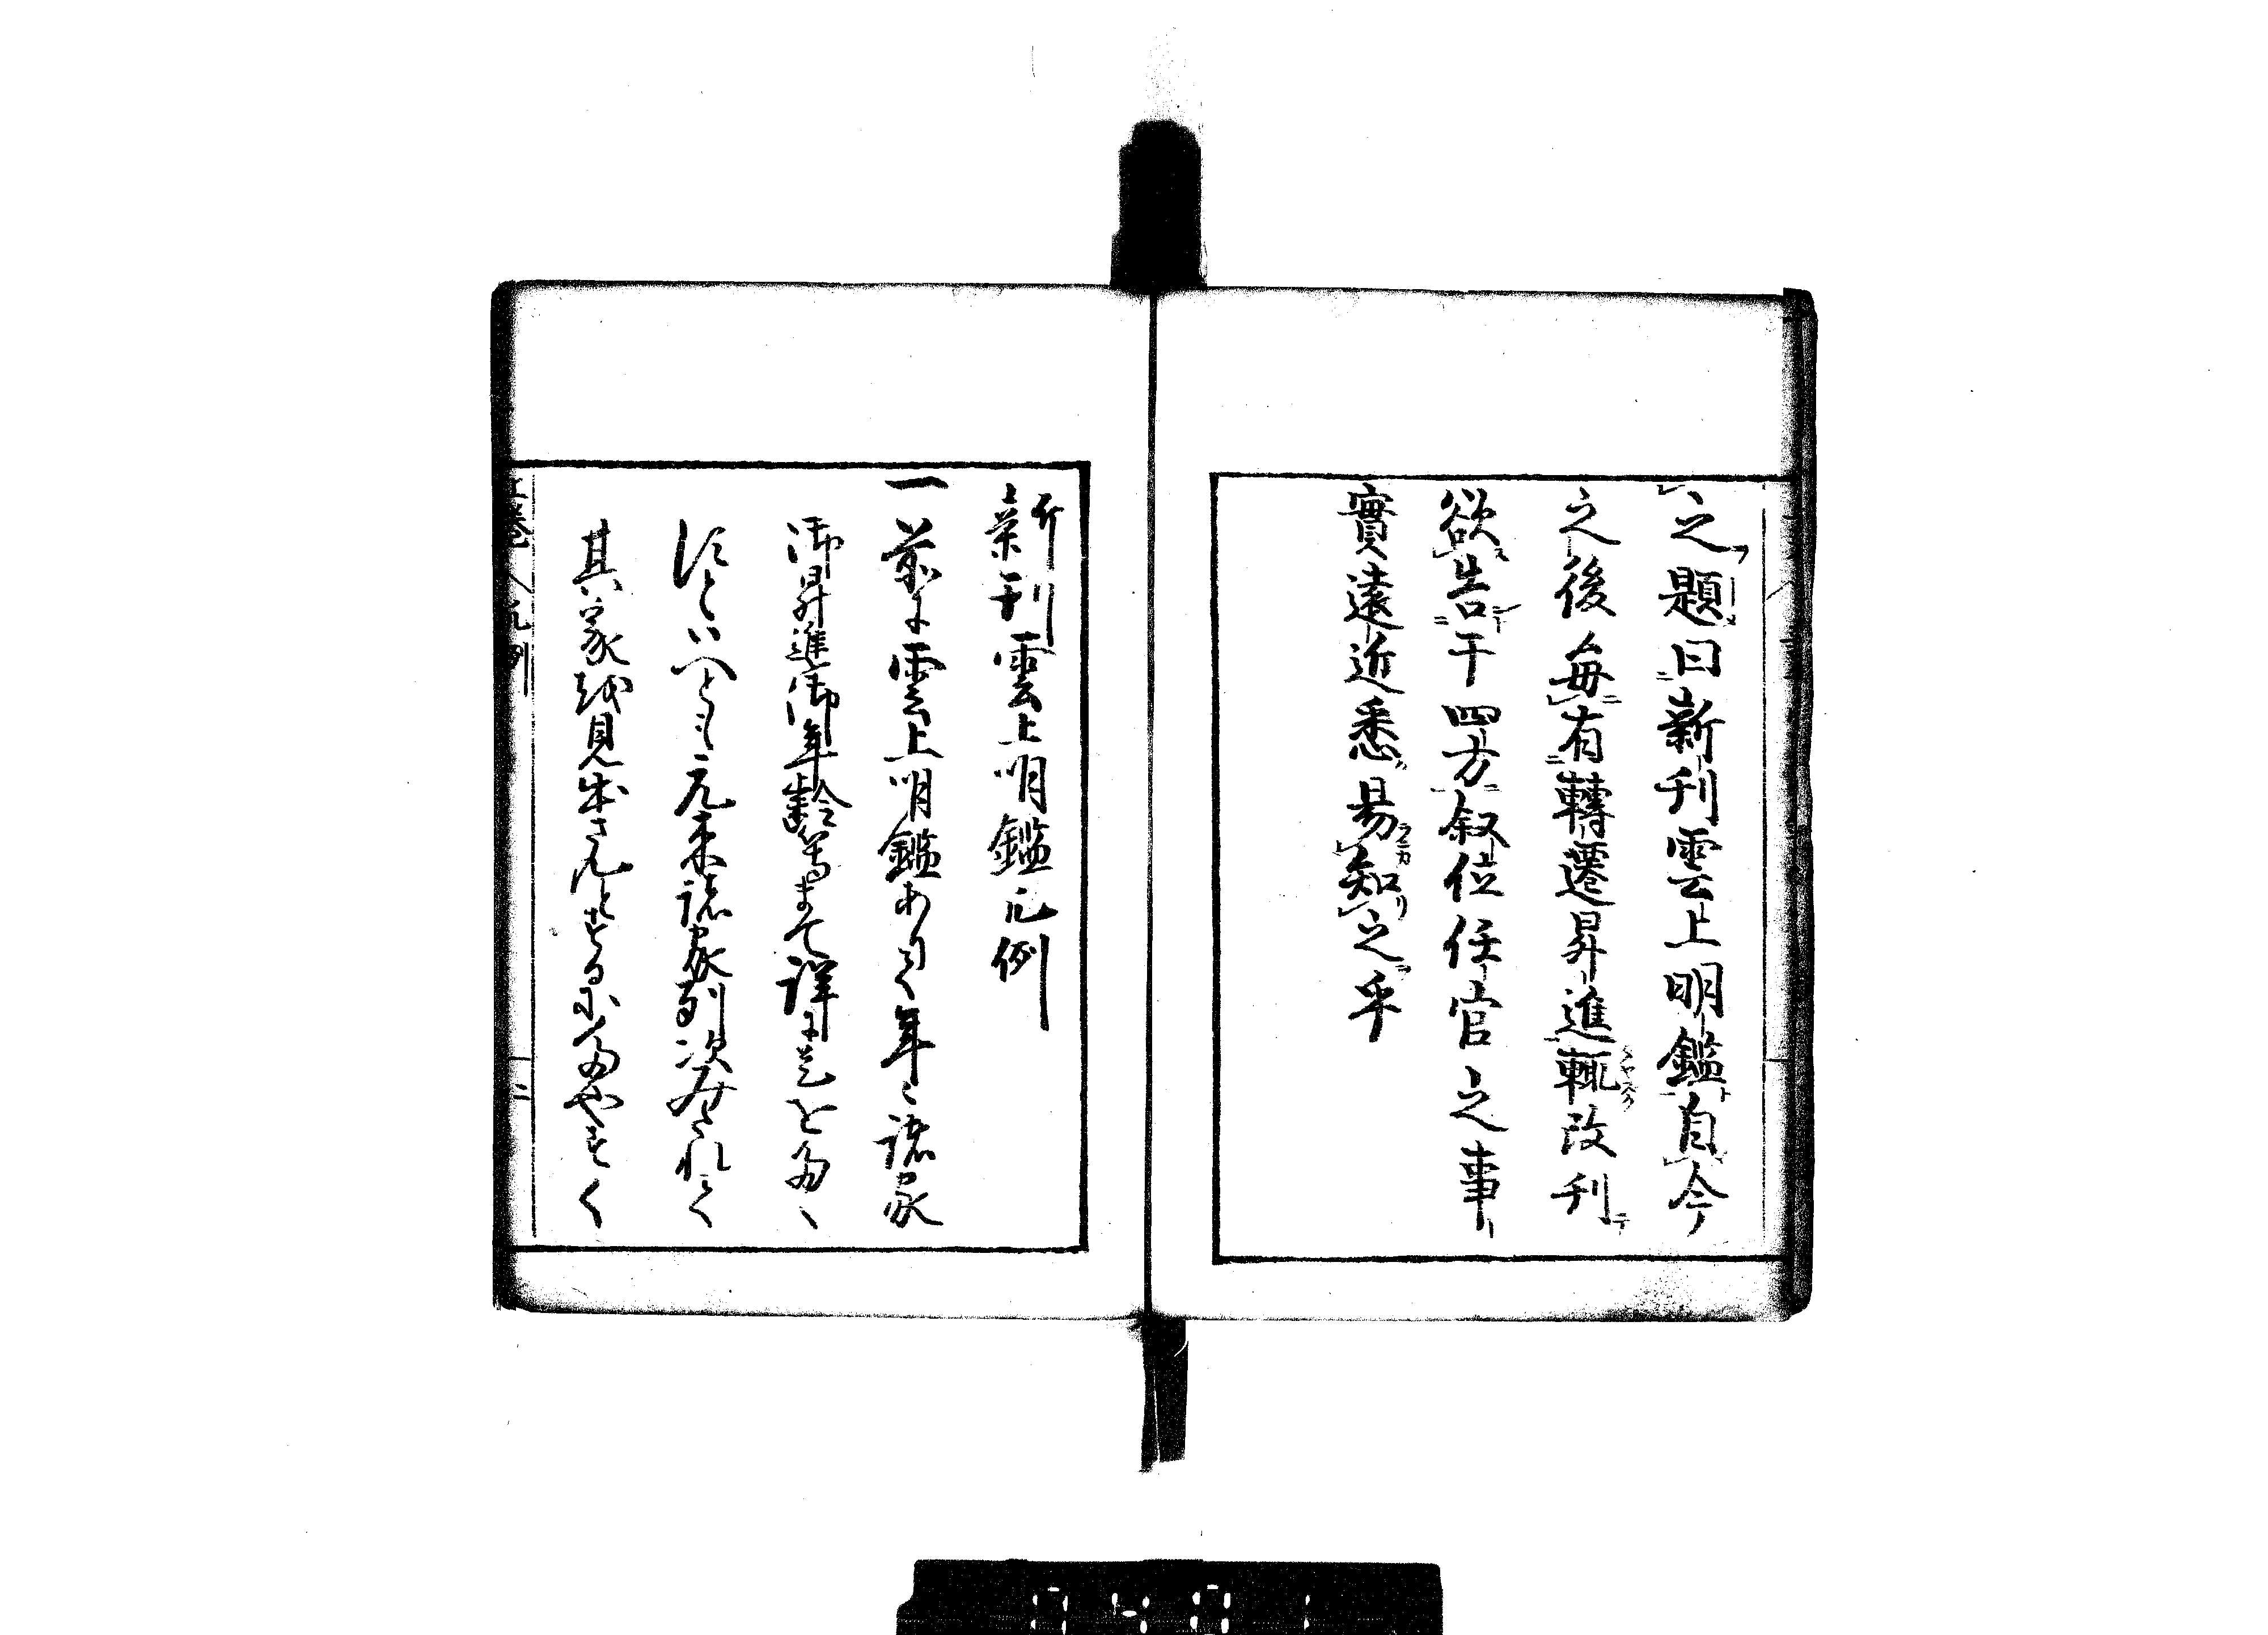 之題曰新刊雲上明鑑自今
之後毎有轉遷昇進輙改刊
欲告于四方叙位任官之事
實遠近悉易知之乎
新刊雲上明鑑凡例
一前に雲上明鑑ありて年々諸家
御昇進御年齢等まて詳に是をあ
けといへとも元来諸家列次みたれて
其家を見出さんとするにたやすく